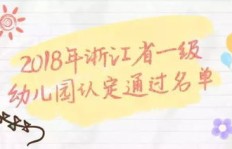 2018年浙江省一级
幼儿园认定通过名单